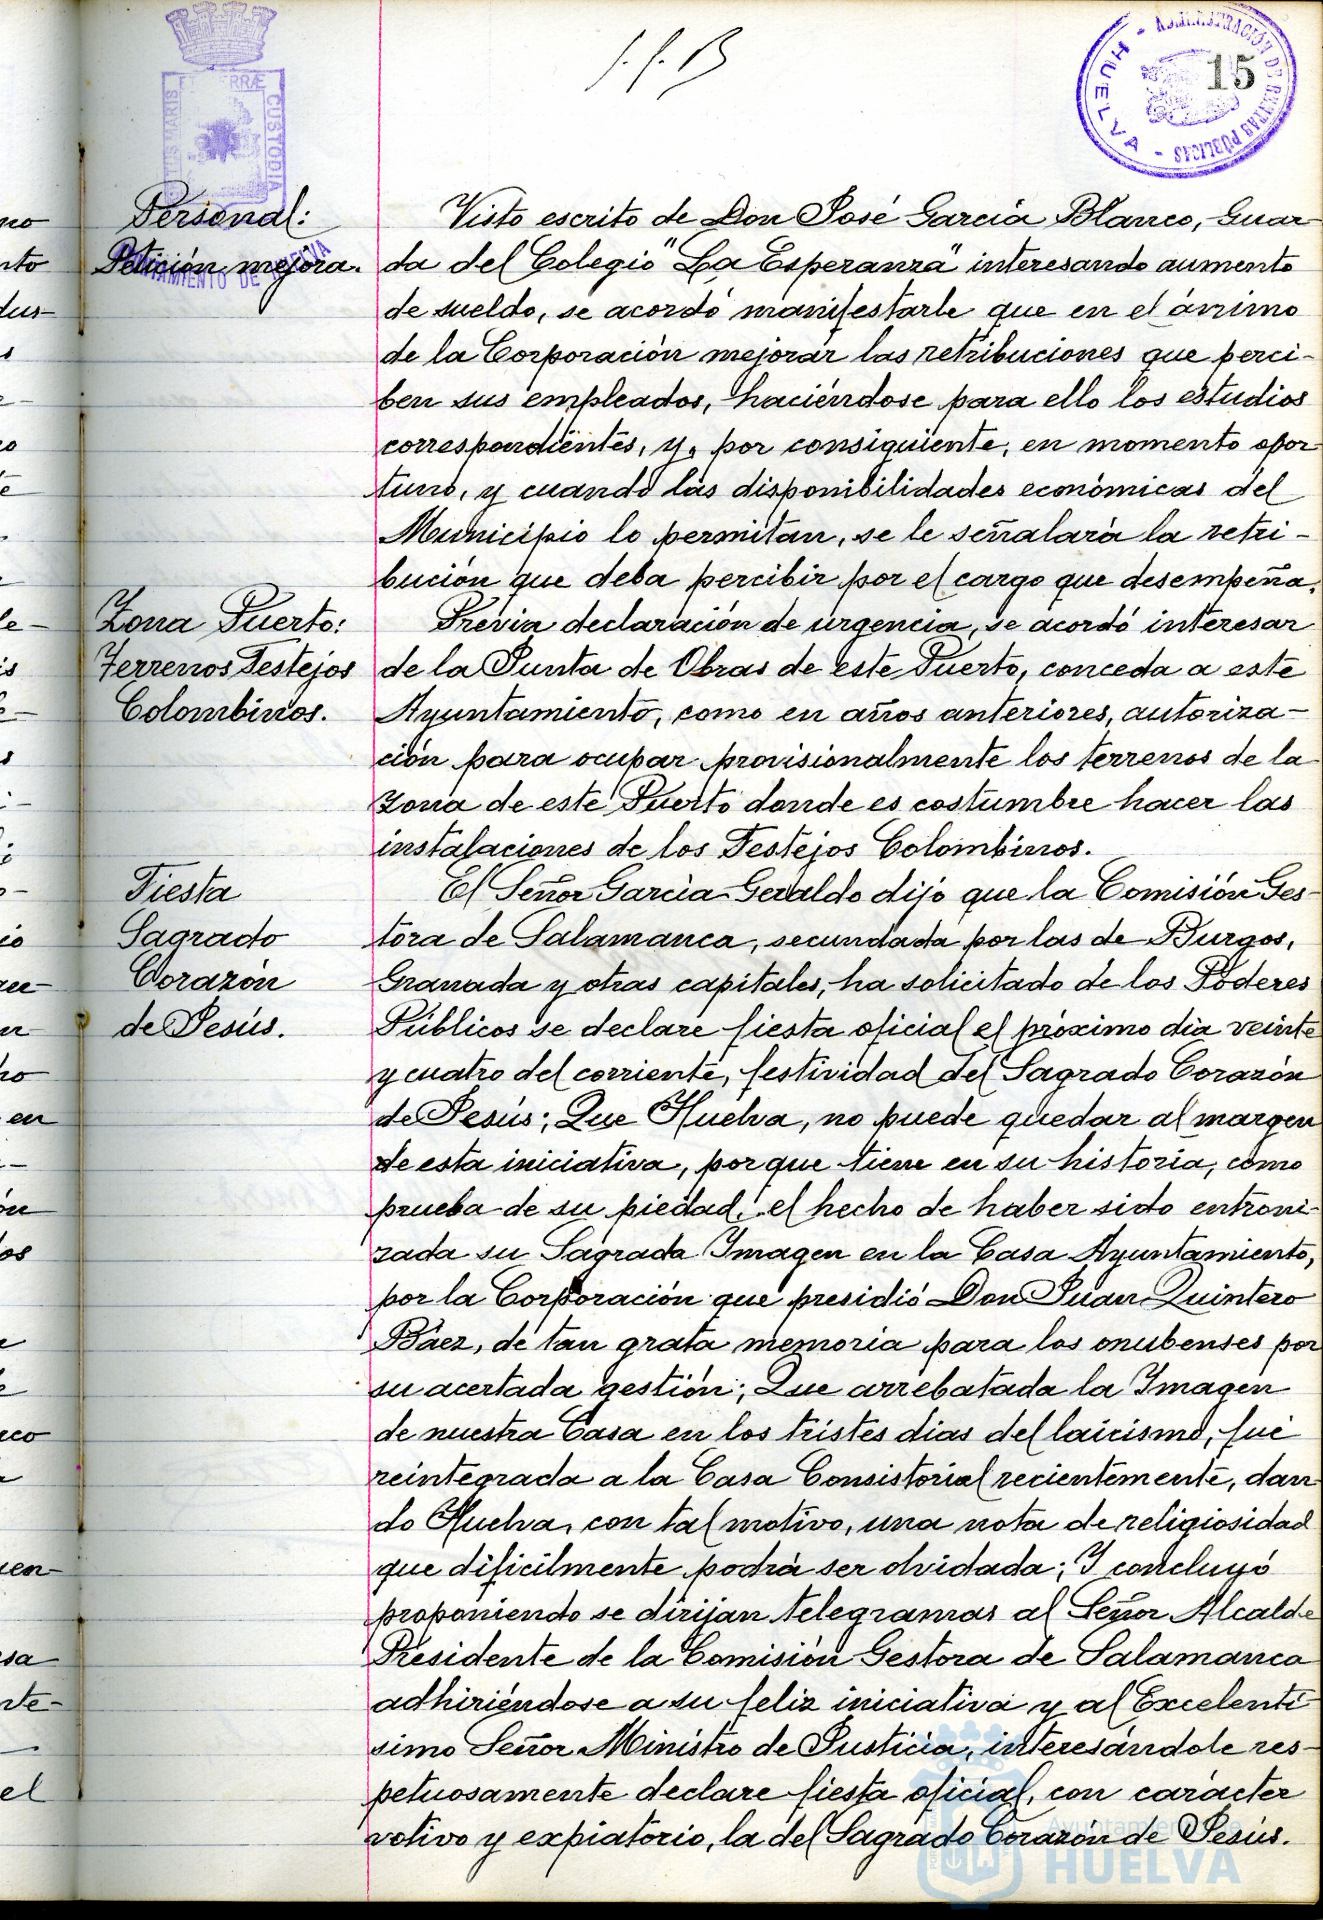 15
ADMINISTRACIÓN DE RENTAS PÚBLICAS
- HUELVA -
PORTUS MARIS ET TERRÆ CUSTODIA
AYUNTAMIENTO DE HUELVA
Personal:
Petición mejora.
Visto escrito de Don José García Blanco, Guar-
da del Colegio "La Esperanza" interesando aumento
de sueldo, se acordó manifestarle que en el ánimo
de la Corporación mejorar las retribuciones que perci-
ben sus empleados, haciéndose para ello los estudios
correspondientes, y, por consiguiente, en momento opor-
tuno, y cuando las disponibilidades económicas del
Municipio lo permitan, se le señalará la retri-
bución que deba percibir por el cargo que desempeña.
Zona Puerto:
Terrenos Festejos
Colombinos.
Previa declaración de urgencia, se acordó interesar
de la Junta de Obras de este Puerto, conceda a este
Ayuntamiento, como en años anteriores, autoriza-
ción para ocupar provisionalmente los terrenos de la
zona de este Puerto donde es costumbre hacer las
instalaciones de los Festejos Colombinos.
Fiesta
Sagrado
Corazón
de Jesús.
El Señor García Geraldo dijo que la Comisión Ges-
tora de Salamanca, secundada por las de Burgos,
Granada y otras capitales, ha solicitado de los Poderes
Públicos se declare fiesta oficial el próximo dia veinte
y cuatro del corriente, festividad del Sagrado Corazón
de Jesús; Que Huelva, no puede quedar al margen
de esta iniciativa, porque tiene en su historia, como
prueba de su piedad, el hecho de haber sido entroni-
zada su Sagrada Imagen en la Casa Ayuntamiento,
por la Corporación que presidió Don Juan Quintero
Báez, de tan grata memoria para los onubenses por
su acertada gestión; Que arrebatada la Imagen
de nuestra Casa en los tristes dias del laicismo, fué
reintegrada a la Casa Consistorial recientemente, dan-
do Huelva, con tal motivo, una nota de religiosidad
que dificilmente podrá ser olvidada; Y concluyó
proponiendo se dirijan telegramas al Señor Alcalde
Presidente de la Comisión Gestora de Salamanca
adhiriéndose a su feliz iniciativa y al Excelentí-
simo Señor Ministro de Justicia, interesándole res-
petuosamente declare fiesta oficial, con carácter
votivo y expiatorio, la del Sagrado Corazón de Jesús.
Ayuntamiento de
HUELVA